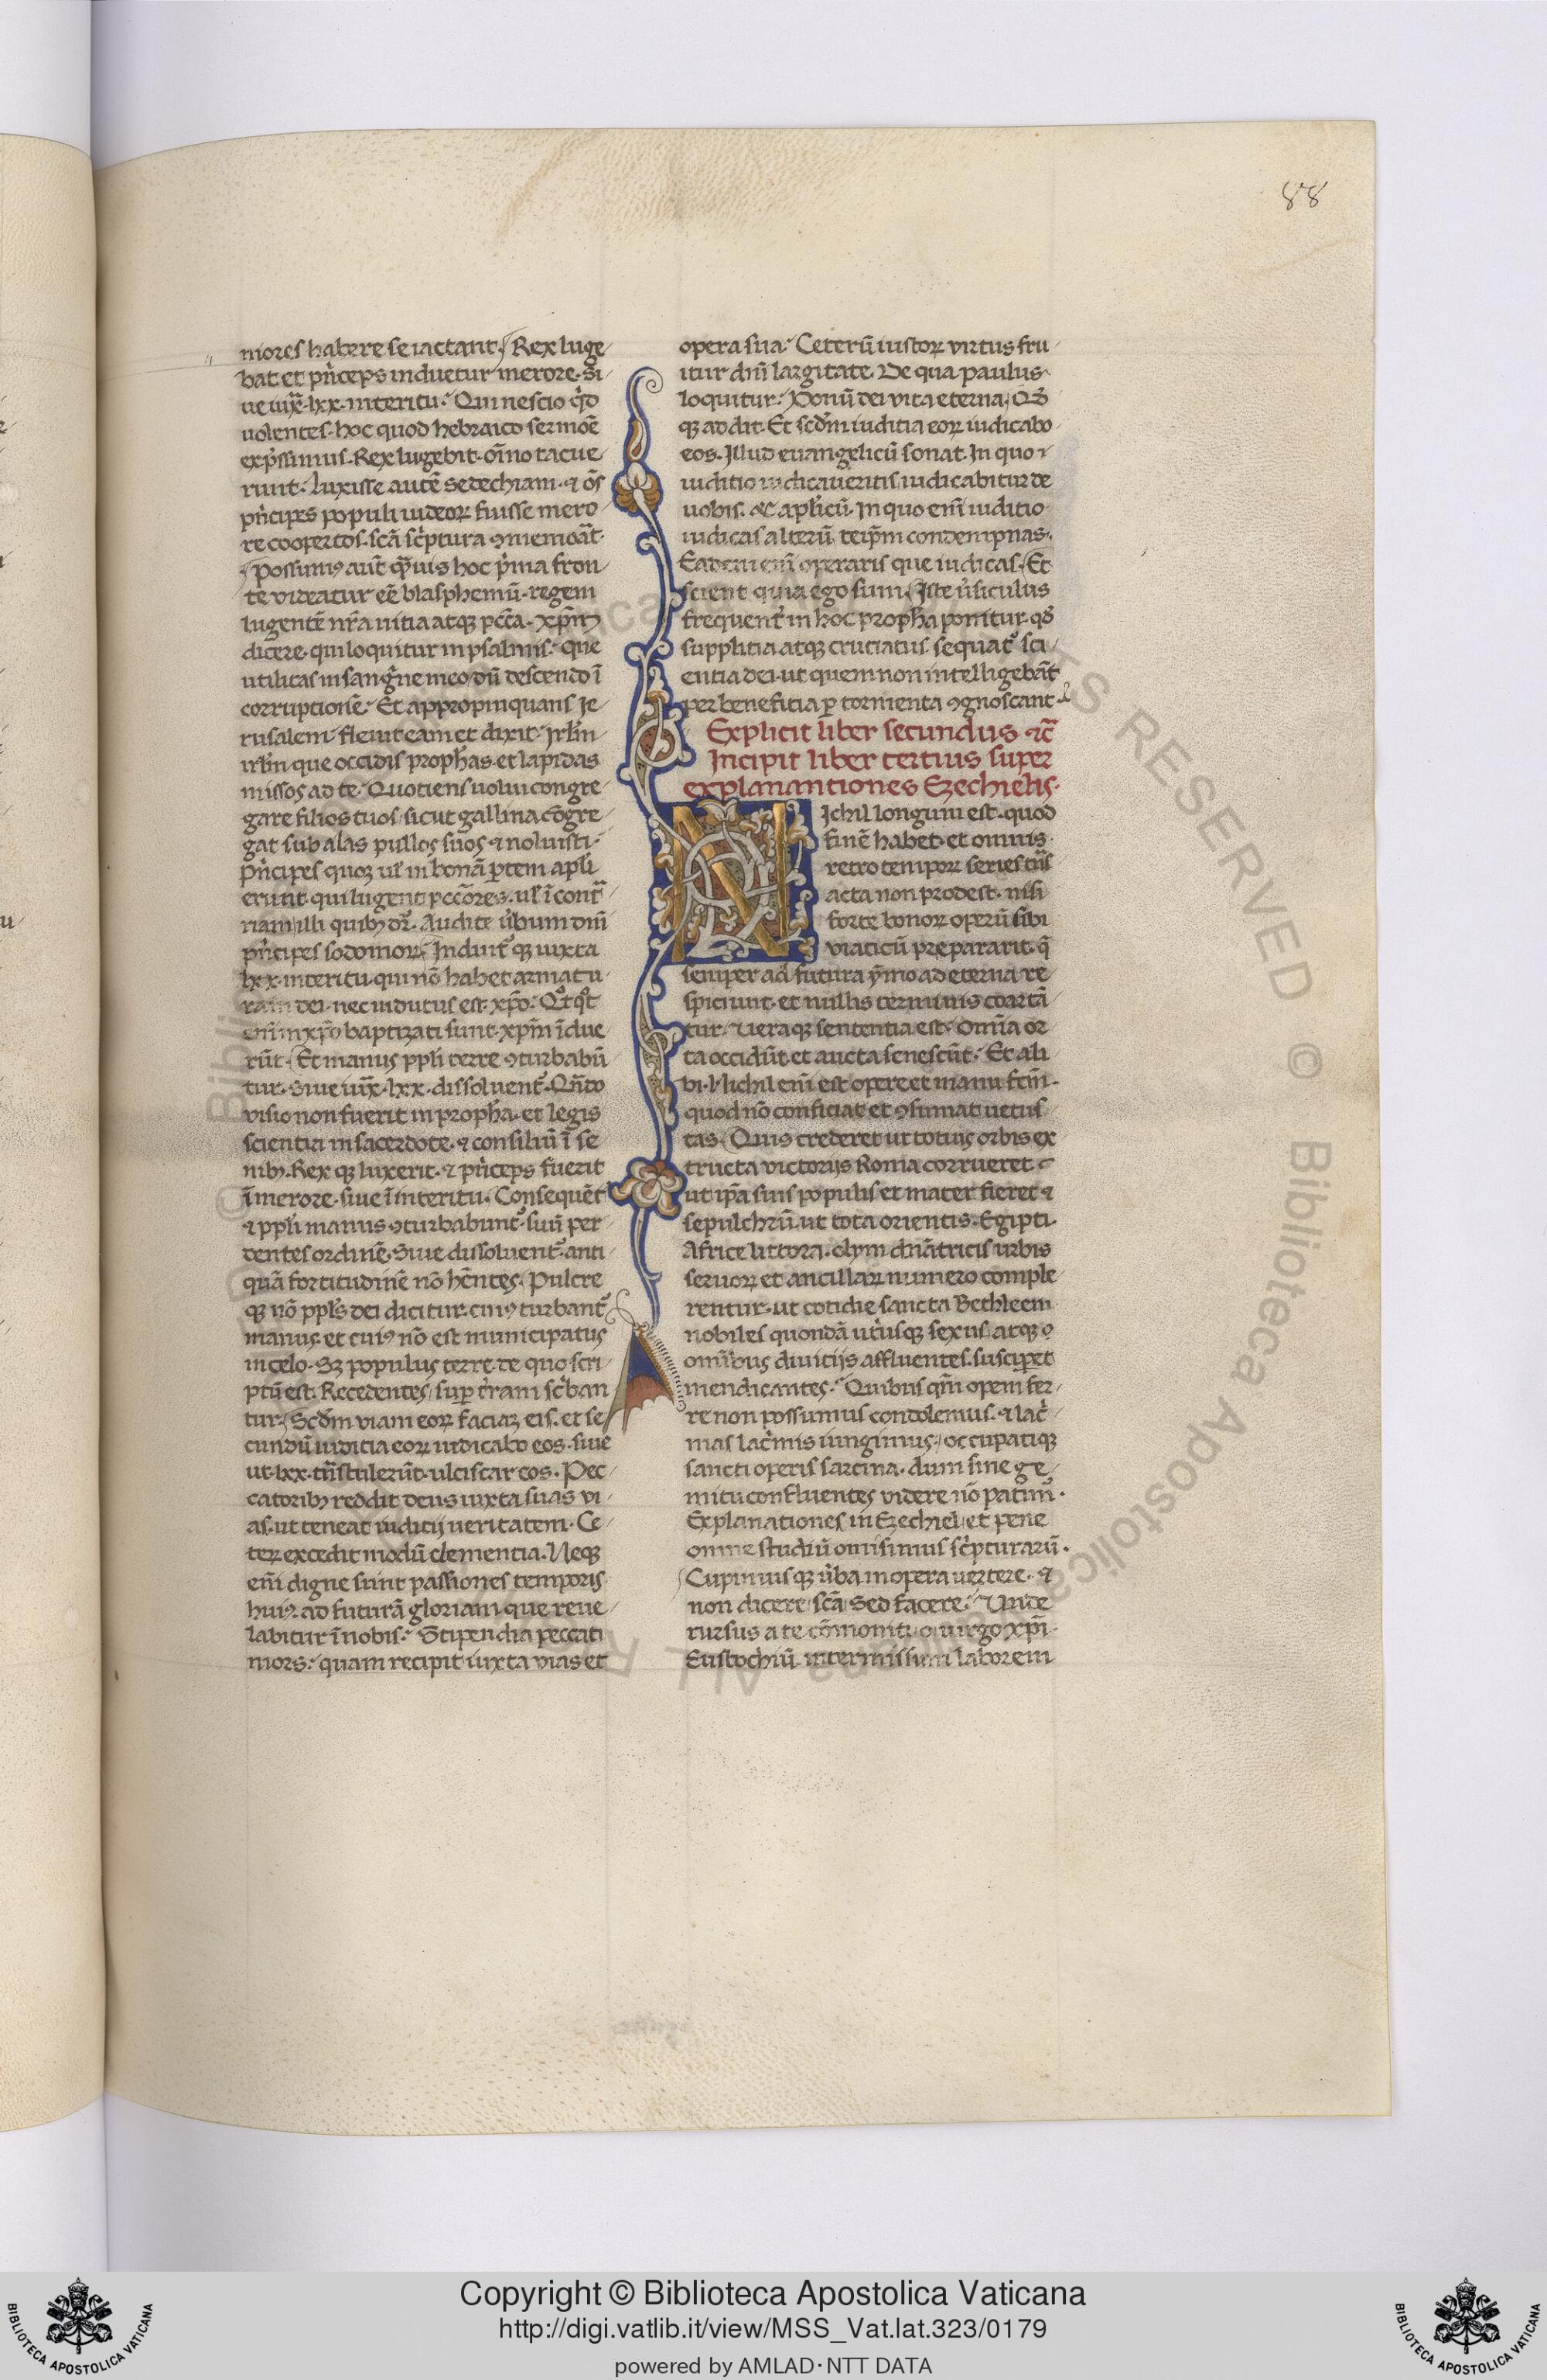 88
mores habere se iactant. Rex luge
bat et pn̄ceps induetur merore. Si
ue iux̄. lxx. interitu. Qui nescio qd̄
uolentes. hoc quod hebraico sermoē
exp̄ssimus. Rex lugebit. oīno tacue
runt. Luxisse autē sedechiam. ⁊ oēs
pn̄cipes populi iudeoꝝ fuisse mero
re coopertos. scā sc̄ptura ꝯmemoāt.
Possumꝰ aūt qͣuis hoc p̄ma fron
te videatur eē blasphemū. regem
lugentē nr̄a uitia atqꝫ pcc̄a. xp̄m
dicere. qui loquitur in psalmis. que
utilitas in sangn̄e meo dū descendo ī
corruptionē. Et appropinquans Je
rusalem fleuit eam et dixit. Jrl̄m
irl̄m que occidis prophās. et lapidas
missos ad te. Quotiens uolui congre
gare filios tuos. sicut gallina cōgre
gat sub alas pullos suos. ⁊ noluisti.
pn̄cipes quoqꝫ ul̄ in bonā ꝑtem apl̄i
erunt. qui lugent pccōres. ul̄ ī contͣ
riam. illi quibꝫ dr̄. Audite ūbum dn̄i
pn̄cipes sodomoꝝ. Induūt᷑ qꝫ iuxta
lxx. interitu. qui nō habet armatu
ram dei. nec indutus est xp̄o. Qͦtqͦt
enī in xp̄o baptizati sunt. xp̄m īdue
rūt. Et manus ppl̄i terre ꝯturbabū
tur. Siue iux̄. lxx. dissoluent᷑. Qn̄do
visio non fuerit in prophā. et legis
scientia in sacerdote. ⁊ consiliū ī se
nibꝫ. Rex qꝫ luxerit. ⁊ pn̄ceps fuerit
ī merore. siue ī interitu. Consequēt᷑
⁊ ppl̄i manus ꝯturbabunt᷑. suū per
dentes ordinē. Siue dissoluent᷑. anti
quā fortitudinē nō hn̄tes. Pulcre
qꝫ nō ppl̄s dei dicitur. cuiꝰ turbant᷑
manus. et cuiꝰ nō est municipatus
in celo. Sꝫ populus terre. de quo scri
ptū est. Recedentes sup t̄ram sc̄ban
tur. Scd̄m viam eoꝝ faciaꝫ eis. et se
cundū iudicia eoꝝ iudicabo eos. siue
ut. lxx. tn̄stulerūt. ulciscar eos. Pec
catoribꝫ reddit deus iuxta suas vi
as. ut teneat iudicij ueritatem. Ce
teꝝ excedit modū clementia. Neqꝫ
enī digne sunt passiones temporis
huiꝰ ad futurā gloriam que reue
labitur ī nobis. Stipendia peccati
mors. quam recipit iuxta vias et
opera sua. Ceterū iustoꝝ virtus fru
itur dn̄i largitate. De qua paulus
loquitur. Donū dei vita eterna. Qd̄
qꝫ addit. Et scd̄m iuditia eoꝝ iudicabo
eos. Illud euangelicū sonat. In quo
iuditio iudicaueritis iudicabitur de
uobis. ⁊c aplicū. In quo enī iuditio
iudicas alterū. teip̄m condempnas.
Eadem enī operaris que iudicas. Et
scient quia ego sum. Iste ūsiculus
frequent̄ in hoc prophā ponitur. qd̄
supplitia atqꝫ cruciatus. sequat᷑ sci
entia dei. ut quem non intelligebāt
per benefitia ꝑ tormenta ꝯgnoscant
Explicit liber secundus ⁊c̄
Incipit liber tertius super
explanantiones Ezechielis.
Nichil longum est. quod
finē habet. et omnis
retro tempoꝝ series tn̄s
acta non prodest. nisi
forte bonoꝝ operū sibi
viaticū prepararit. q̄
semper ad futura ẏmo ad eterna re
spiciunt. et nullis terminis coartā
tur. Ueraqꝫ sententia est. Omīa or
ta occidūt. et aucta senescūt. Et ali
bi. Nichil enī est opere et manu fcm̄.
quod nō conficiat et ꝯsumat uetus
tas. Quis crederet ut totius orbis ex
tructa victorijs Roma corrueret.
ut ip̄a suis populis et mater fieret ⁊
sepulchrū. ut tota orientis. Egipti.
Africe littora. olym dn̄atricis urbis
seruoꝝ et ancillaꝝ numero comple
rentur. ut cotidie sancta Bethleem
nobiles quondā ut̄usqꝫ sexus atqꝫ
omībus diuitijs affluentes. susciperet
mendicantes. Quibus qm̄ opem fer
re non possumus condolemus. ⁊ lac̄
mas lac̄mis iungimus. occupatiqꝫ
sancti operis sarcina. dum sine ge
mitu confluentes videre nō patim᷑.
Explanationes in Ezechiel. et pene
omne studiū omisimus sc̄pturarū.
Cupimusqꝫ ūba in opera uertere. ⁊
non dicere scā sed facere. Unde
rursus a te cōmoniti. o uirgo xp̄i
Eustochiū. intermissum laborem
Copyright © Biblioteca Apostolica Vaticana
http://digi.vatlib.it/view/MSS_Vat.lat.323/0179
powered by AMLAD·NTT DATA
BIBLIOTECA APOSTOLICA VATICANA
BIBLIOTECA APOSTOLICA VATICANA